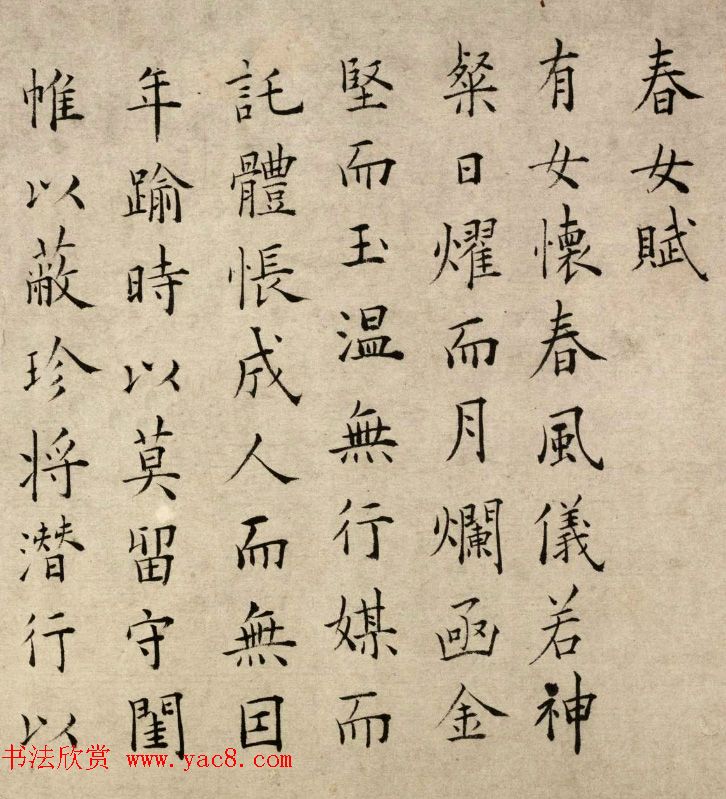 春女賦
有女懷春風儀若神
粲日燿而月爛函金
堅而玉温無行媒而
託體悵成人而無因
年踰時以莫留守閨
帷以蔽珍将潛行以
书法欣赏 www.yac8.com